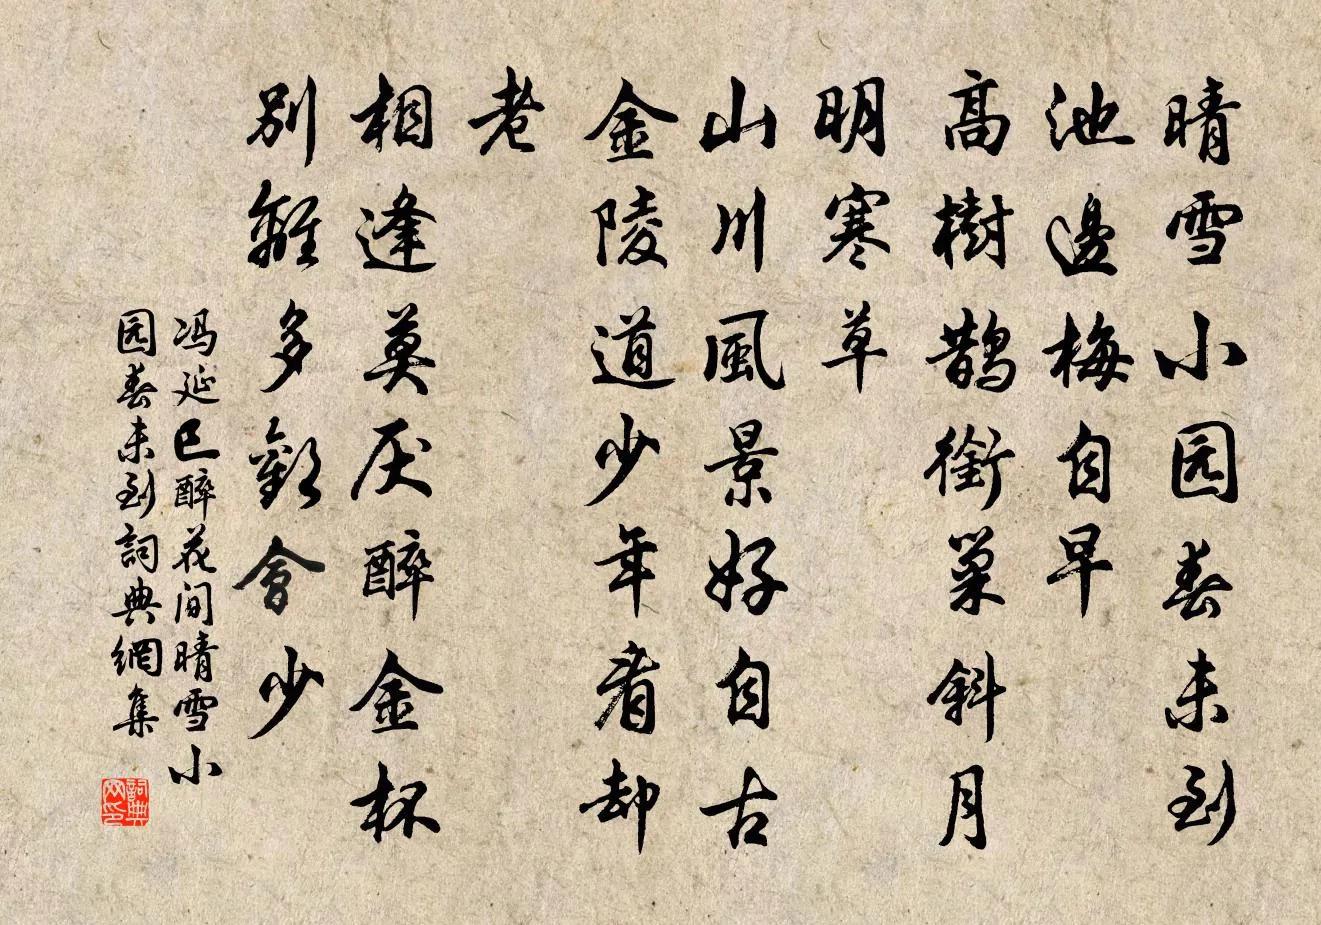 晴雪小园春未到
池邊梅自早
高樹鵲銜巢斜月
明寒草
山川風景好自古
金陵道少年看却
老
相逢莫厌醉金杯
別離多歡會少
冯延巳醉花间晴雪小
园春未到詞典網集
詞典网印